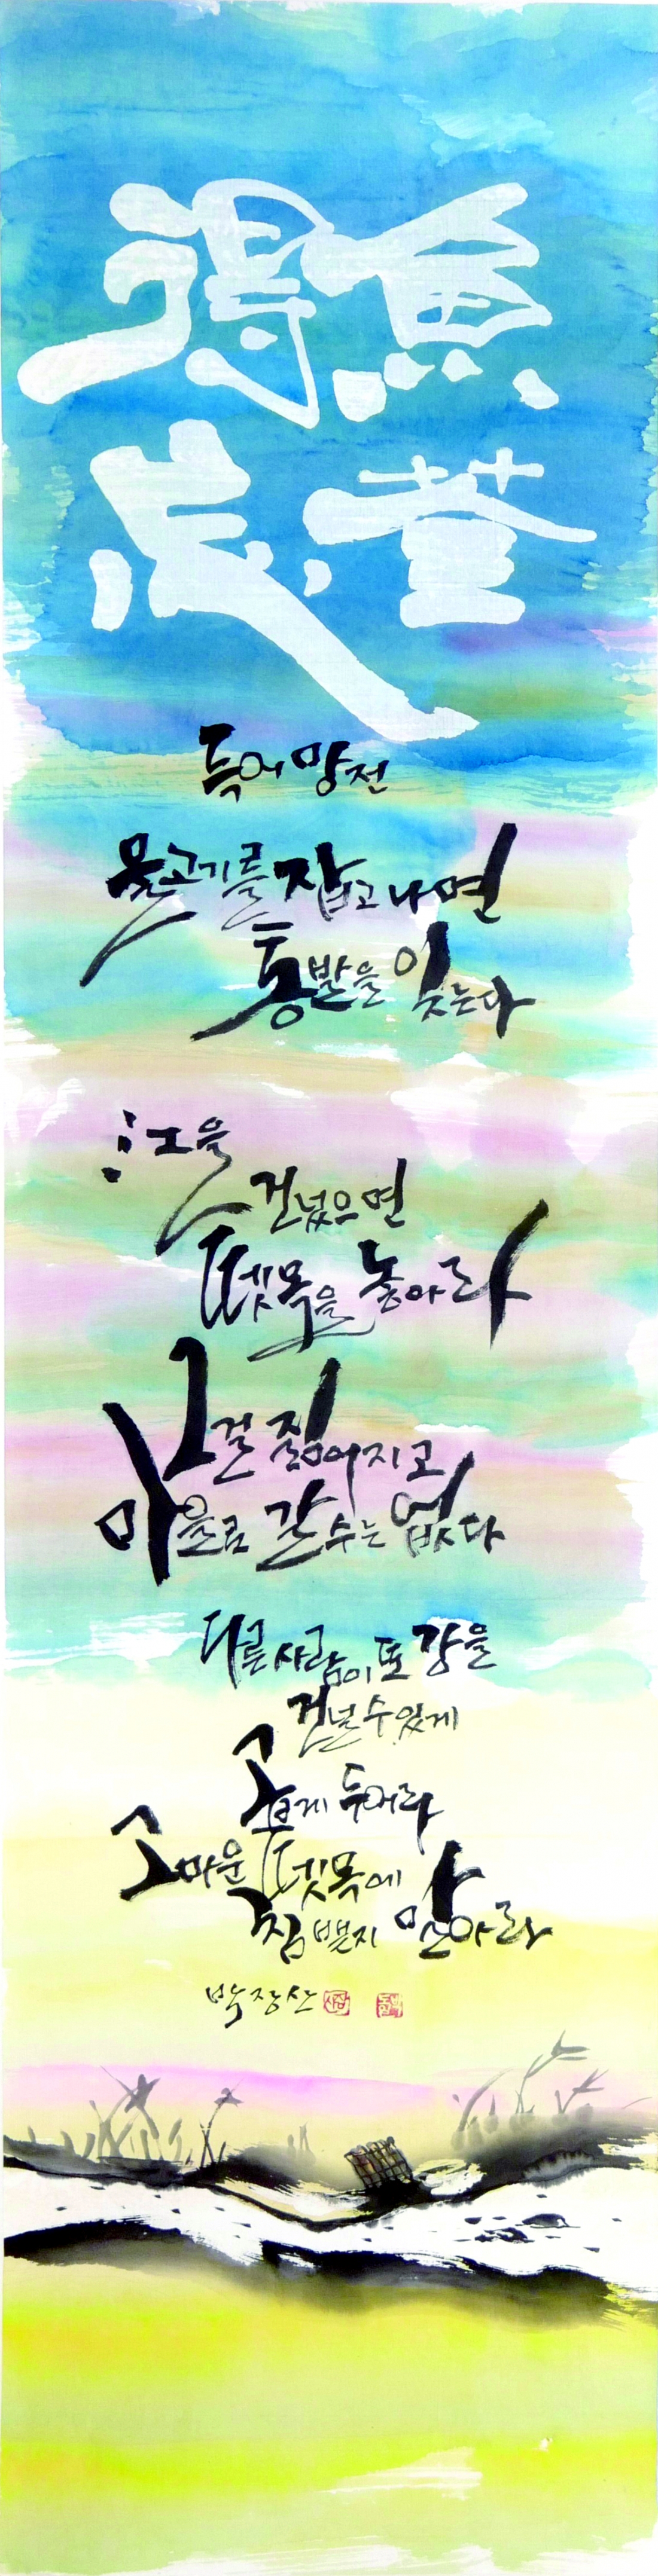 得魚
忘荃
득어망전
물고기를 잡고나면
통발을 잊는다
江을
건넜으면
뗏목을 놓아라
그걸 짊어지고
마을로 갈 수는 없다
다른 사람이 또 강을
건널 수 있게
곱게 두어라
고마운 뗏목에
침 뱉지 말아라
박장산